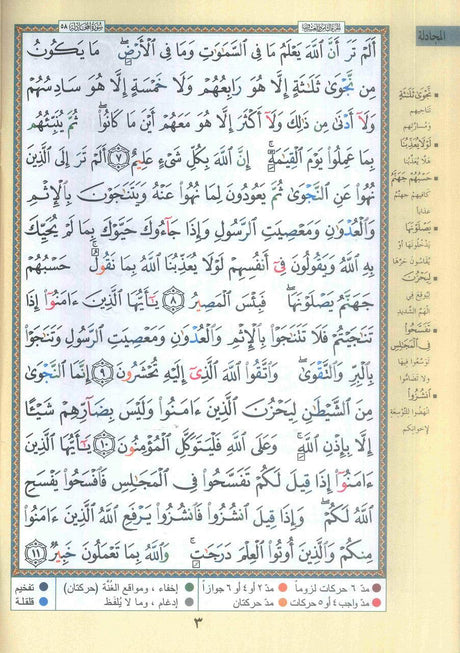 سُورَةُ المُجَادلة ٥٨
المجادلة
أَلَمْ تَرَ أَنَّ اللَّهَ يَعْلَمُ مَا فِي السَّمَٰوَٰتِ وَمَا فِي الْأَرْضِ ۖ مَا يَكُونُ
مِن نَّجْوَىٰ ثَلَٰثَةٍ إِلَّا هُوَ رَابِعُهُمْ وَلَا خَمْسَةٍ إِلَّا هُوَ سَادِسُهُمْ
وَلَا أَدْنَىٰ مِن ذَٰلِكَ وَلَا أَكْثَرَ إِلَّا هُوَ مَعَهُمْ أَيْنَ مَا كَانُوا ۖ ثُمَّ يُنَبِّئُهُم
بِمَا عَمِلُوا يَوْمَ الْقِيَٰمَةِ ۚ إِنَّ اللَّهَ بِكُلِّ شَيْءٍ عَلِيمٌ ٧ أَلَمْ تَرَ إِلَى الَّذِينَ
نُهُوا عَنِ النَّجْوَىٰ ثُمَّ يَعُودُونَ لِمَا نُهُوا عَنْهُ وَيَتَنَٰجَوْنَ بِالْإِثْمِ
وَالْعُدْوَٰنِ وَمَعْصِيَتِ الرَّسُولِ وَإِذَا جَاءُوكَ حَيَّوْكَ بِمَا لَمْ يُحَيِّكَ
بِهِ اللَّهُ وَيَقُولُونَ فِي أَنفُسِهِمْ لَوْلَا يُعَذِّبُنَا اللَّهُ بِمَا نَقُولُ ۚ حَسْبُهُمْ
جَهَنَّمُ يَصْلَوْنَهَا ۖ فَبِئْسَ الْمَصِيرُ ٨ يَٰأَيُّهَا الَّذِينَ ءَامَنُوا إِذَا
تَنَٰجَيْتُمْ فَلَا تَتَنَٰجَوْا بِالْإِثْمِ وَالْعُدْوَٰنِ وَمَعْصِيَتِ الرَّسُولِ وَتَنَٰجَوْا
بِالْبِرِّ وَالتَّقْوَىٰ ۖ وَاتَّقُوا اللَّهَ الَّذِي إِلَيْهِ تُحْشَرُونَ ٩ إِنَّمَا النَّجْوَىٰ
مِنَ الشَّيْطَٰنِ لِيَحْزُنَ الَّذِينَ ءَامَنُوا وَلَيْسَ بِضَارِّهِمْ شَيْئًا
إِلَّا بِإِذْنِ اللَّهِ ۚ وَعَلَى اللَّهِ فَلْيَتَوَكَّلِ الْمُؤْمِنُونَ ١٠ يَٰأَيُّهَا الَّذِينَ
ءَامَنُوا إِذَا قِيلَ لَكُمْ تَفَسَّحُوا فِي الْمَجَٰلِسِ فَافْسَحُوا يَفْسَحِ
اللَّهُ لَكُمْ ۖ وَإِذَا قِيلَ انشُزُوا فَانشُزُوا يَرْفَعِ اللَّهُ الَّذِينَ ءَامَنُوا
مِنكُمْ وَالَّذِينَ أُوتُوا الْعِلْمَ دَرَجَٰتٍ ۚ وَاللَّهُ بِمَا تَعْمَلُونَ خَبِيرٌ ١١
نَّجْوَىٰ ثَلَٰثَةٍ
تناجيهم
ومسارّتهم
لَوْلَا يُعَذِّبُنَا
هلّا يعذّبنا
حَسْبُهُمْ جَهَنَّمُ
كافيهم جهنم
عذاباً
يَصْلَوْنَهَا
يدخلونها أو
يقاسون حرّها
لِيَحْزُنَ
ليوقع في
الهمّ الشديد
تَفَسَّحُوا
فِي الْمَجَٰلِسِ
توسّعوا فيها
ولا تضامّوا
انشُزُوا
انهضوا للتوسعة
لإخوانكم
مدّ ٦ حركات لزوماً مدّ ٢ أو ٤ أو ٦ جوازاً إخفاء ، ومواقع الغُنَّة (حركتان) تفخيم
مدّ واجب ٤ أو ٥ حركات مدّ حركتان إدغام ، وما لا يُلفَظ قلقلة
٣